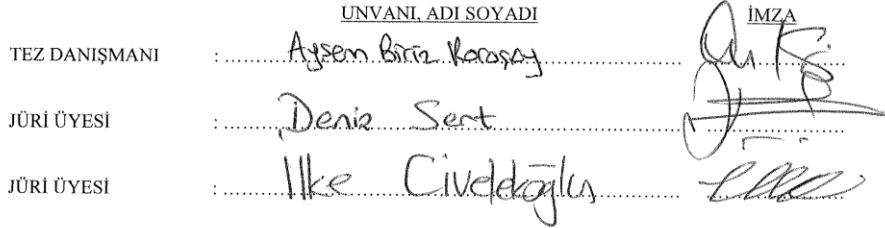 UNVANI, ADI SOYADI İMZA
TEZ DANIŞMANI : Ayşem Biriz Karaçay
JÜRİ ÜYESİ : Deniz Sert
JÜRİ ÜYESİ : Ilke Civelekoğlu